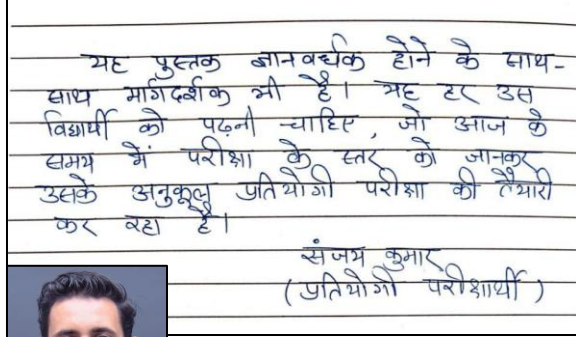 यह पुस्तक ज्ञानवर्धक होने के साथ-
साथ मार्गदर्शक भी है। यह हर उस
विद्यार्थी को पढ़नी चाहिए, जो आज के
समय में परीक्षा के स्तर को जानकर
उसके अनुकूल प्रतियोगी परीक्षा की तैयारी
कर रहा है।
संजय कुमार
(प्रतियोगी परीक्षार्थी)